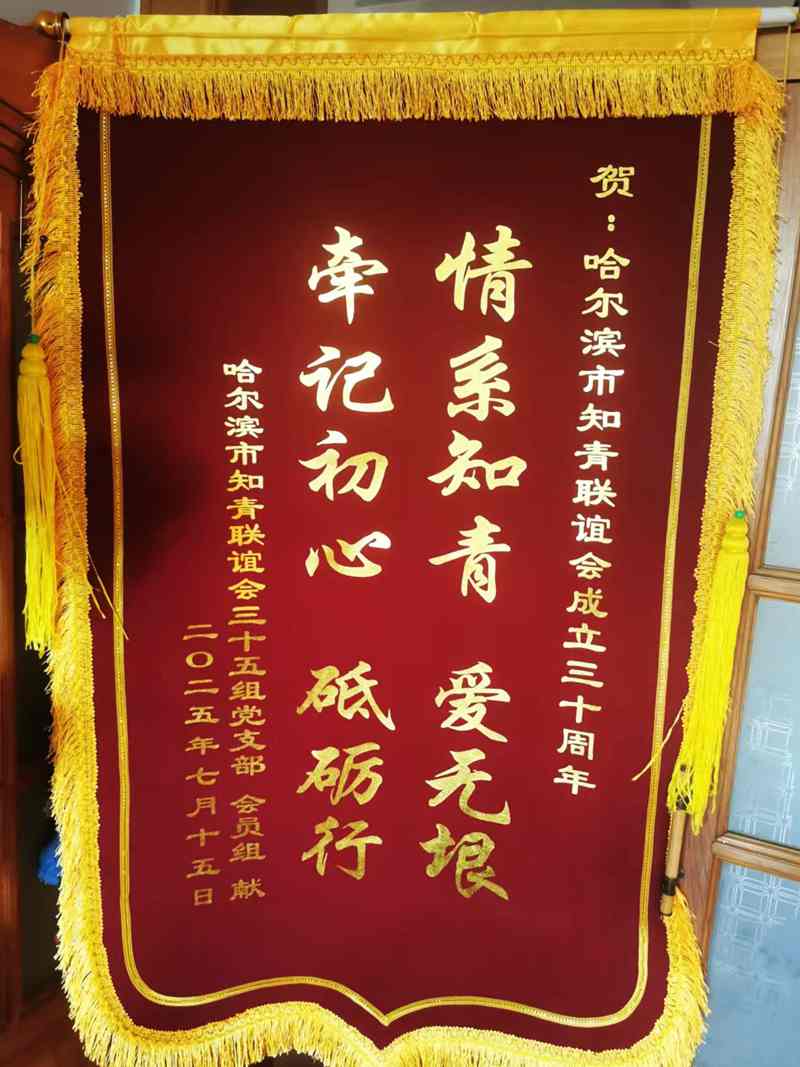 贺：哈尔滨市知青联谊会成立三十周年
情系知青 爱无垠
牵记初心 砥砺行
哈尔滨市知青联谊会三十五组党支部 会员组 献
二〇二五年七月十五日